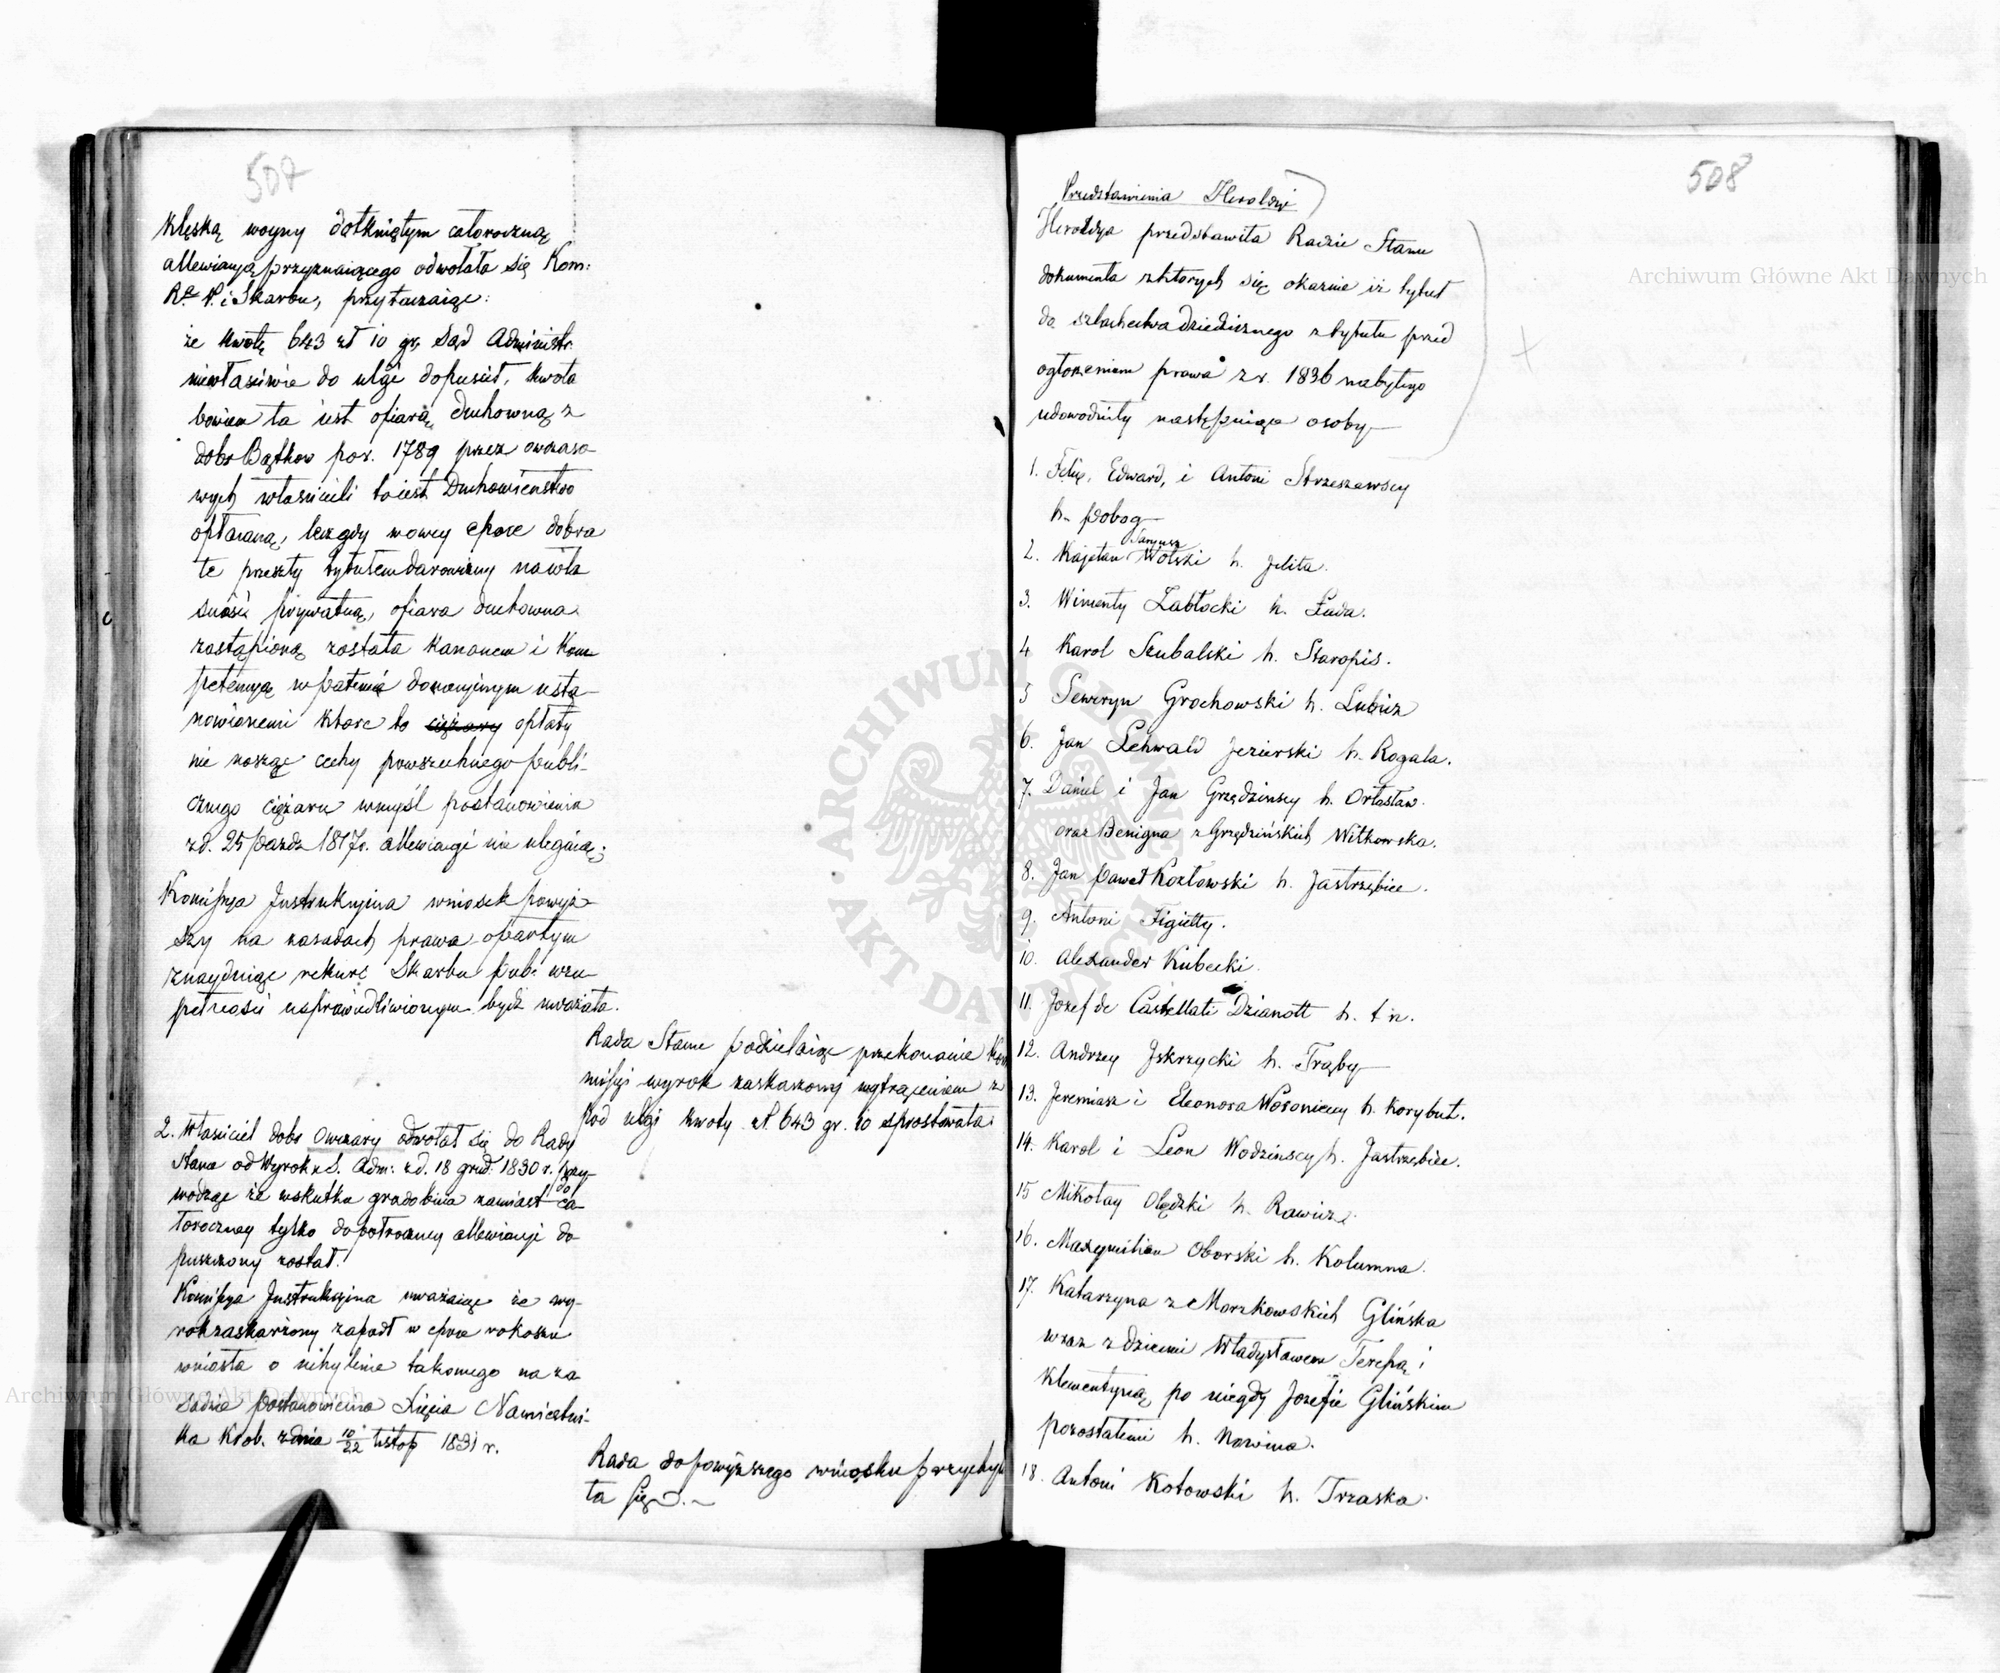 507
klęską woyny dotkniętym całoroczną
allewiacyą przyznaiącego odwołała się Kom:
R. P. i Skarbu, przytaczaiąc:
że kwotę 643 zł 10 gr, Sąd Administr.
niewłaściwie do ulgi dopuścił, kwota
bowiem ta iest ofiarą duchowną z
dóbr Bątkow por. 1789 przez owczaso-
wych właścicieli toiest Duchowieństwo
opłacaną, lecz gdy nowey epoce dobra
te przeszły tytułem darowizny na wła
sność prywatną, ofiara duchowna
zastąpioną została kanonem i kom
petencyą w patencie donacyinym usta-
nowionemi które to ciężary opłaty
nie noszą cechy powszechnego publi-
cznego ciężaru wmyśl postanowienia
z d. 25 Paźdz 1817 r. allewiacyi nie ulegaią;
Komissya Instrukcyina wniosek powyż-
szy na zasadach prawa opartym
znayduiąc rekurs Skarbu pub: wzu-
pełności usprawiedliwionym bydź uważała.
Rada Stanu podzielaiąc przekonanie Kom
missyi wyrok zaskarżony wytrąceniem z
pod ulgi kwoty zł. 643 gr. 10 sprostowała
2. Właściciel dóbr Owczary odwołał się do Rady
Stanu od Wyroku S. Adm: z d. 18 grud: 1830 r. przy-
wodząc że wskutku gradobicia zamiast do ca-
łoroczney tylko do półroczney allewiacyi do
puszczony został.
Komissya Instrukcyina uważaiąc że wy-
rok zaskarżony zapadł w epoce rokoszu
wniosła o uchylenie takowego na za
sadzie postanowienia Xięcia Namiestni-
ka Król. z dnia 10/22 Listop 1831 r.
Rada do powyższego wniosku przychyli
ła się.
508
Przedstawienia Heroldyi
Heroldya przedstawiła Radzie Stanu
dokumenta z których się okazuie iż tytuł
do szlachectwa dziedzicznego z tytułu przed
ogłoszeniem prawa z r. 1836 nabytego
udowodniły następuiące osoby
1. Felix, Edward, i Antoni Strzeszewscy
h. Pobog
2. Kajetan Taryusz Wolski h. Jelita.
3. Wincenty Zabłocki h. Łada.
4 Karol Szubalski h. Staropis.
5 Seweryn Grochowski h. Lubicz
6. Jan Lehwald Jezierski h. Rogala.
7. Daniel i Jan Grzędzinscy h. Ostasław.
oraz Benigna z Grzędzińskich Witkowska.
8. Jan Paweł Kozłowski h. Jastrzębiec.
9. Antoni Figietty.
10. Alexander Kubecki.
11. Jozef de Castellati Dzianott h. t. n.
12. Andrzey Iskrzycki h. Trąby
13. Jeremiasz i Eleonora Woronieccy h. Korybut.
14. Karol i Leon Wodzinscy h. Jastrzębiec.
15 Mikołay Olędzki h. Rawicz.
16. Maxymilian Oborski h. Kolumna.
17. Katarzyna z Morzkowskich Glińska
wraz z dziećmi Władysławem Teresą i
Klementyną po niegdy Jozefie Glińskim
pozostałemi h. Nowina.
18. Antoni Kotowski h. Trzaska.
Archiwum Główne Akt Dawnych
Archiwum Główne Akt Dawnych
ARCHIWUM GŁÓWNE AKT DAWNYCH